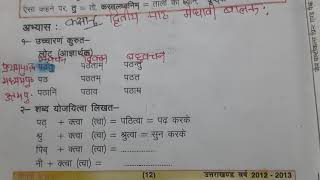 ऐसा कहने पर, तु = तो, करतलध्वनिम् = ताली की
अभ्यास : कक्षा- द्वितीय पाठ मेधावी बालकः
१- उच्चारणं कुरुत-
लोट् (आज्ञार्थक)
एकवचन द्विवचन बहुवचन
प्रथमपुरुष पठतु पठताम् पठन्तु
मध्यमपु. पठ पठतम् पठत
उत्तमपु. पठानि पठाव पठाम
२- शब्द योजयित्वा लिखत-
पठ् + क्त्वा (त्वा) = पठित्वा = पढ़ करके
श्रु + क्त्वा (त्वा) = श्रुत्वा = सुन करके
पिब् + क्त्वा (त्वा) =
नी + क्त्वा (त्वा) =
(12)
उत्तराखण्ड वर्ष 2012 - 2013